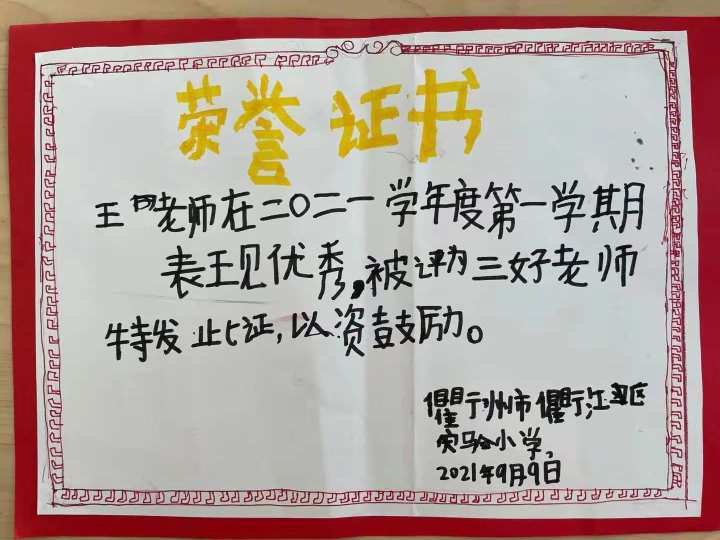 荣誉证书
王 老师在二〇二一学年度第一学期
表现优秀,被评为三好老师
特发此证,以资鼓励。
衢州市衢江区
实验小学,
2021年9月9日